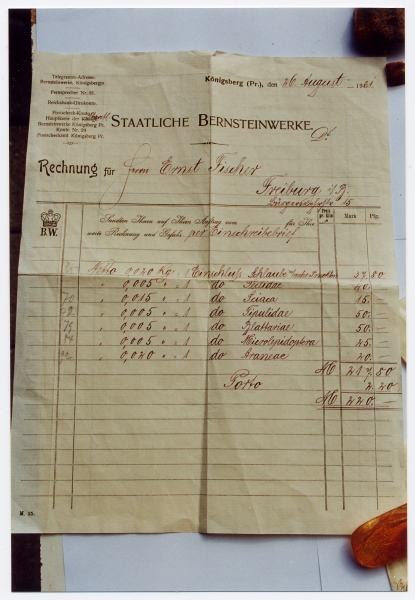 Telegramm-Adresse:
Bernsteinwerke, Königsberg
Fernsprecher Nr.
Reichsbank-Girokonto
Postscheck-Konto
Hauptkasse der
Bernsteinwerke Königsberg Pr.
Konto Nr. 20
Postscheckamt Königsberg Pr.
Königsberg (Pr.), den 26 August
STAATLICHE BERNSTEINWERKE
Rechnung für Herrn Ernst Fischer
Freiburg i/B.
15
B.W.
Sandten Ihnen auf Ihren Auftrag vom für Ihre
werte Rechnung und Gefahr per Einschreibebrief
Mark Pfg.
Netto 0,020 Kg. Einschluß 27.80
" 0,005 " " 1 do
" 0,015 " " 1 do 15.—
" 0,005 " " 1 do Tipulidae 50.—
" 0,005 " " 1 do Blattariae 50.—
" 0,005 " " 1 do Microlepidoptera 45.—
" 0,020 " " 1 do Araneae 20.—
M 217.80
Porto 2.20
M 220.—
M. 35.